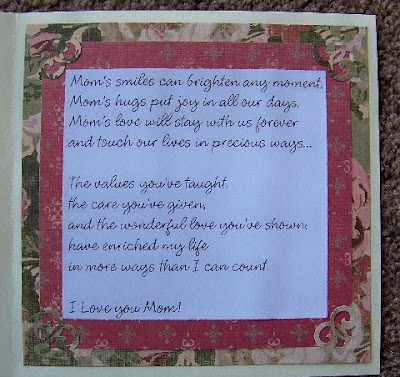 Mom's smiles can brighten any moment,
Mom's hugs put joy in all our days,
Mom's love will stay with us forever
and touch our lives in precious ways...
The values you've taught,
the care you've given,
and the wonderful love you've shown,
have enriched my life
in more ways than I can count.
I Love you Mom!